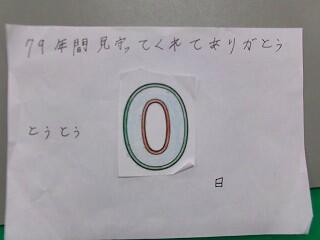 79年間見守ってくれてありがとう
とうとう
0
日